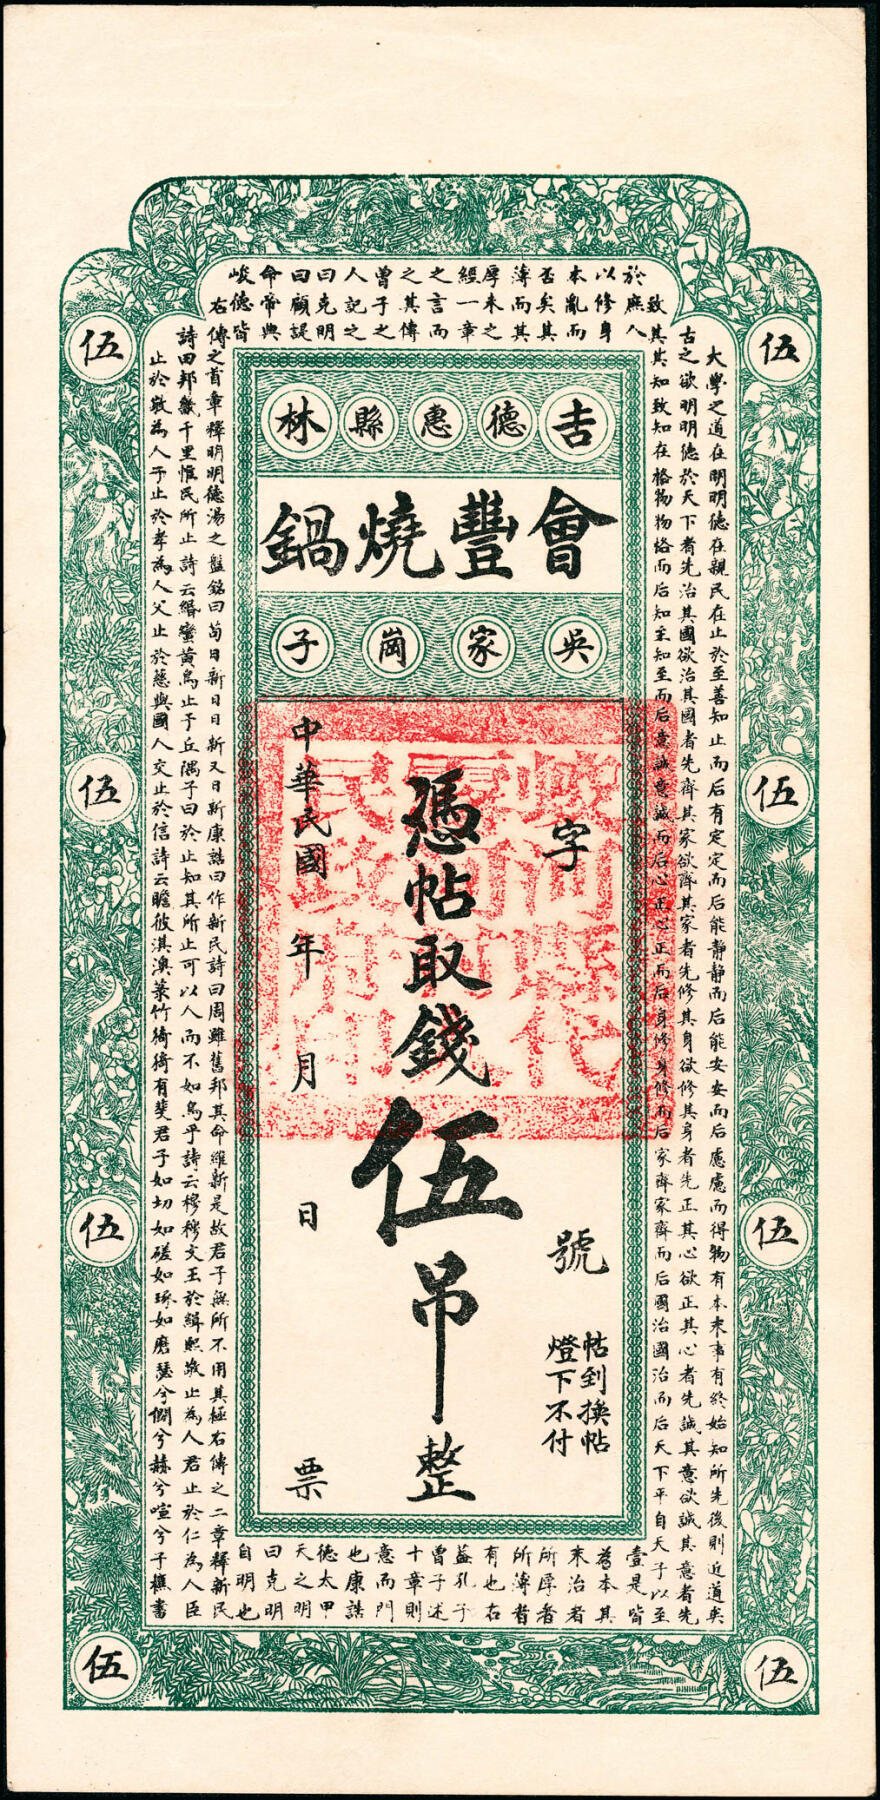 吉德惠縣林
會豐燒鍋
吳家崗子
字 號
帖到換帖
燈下不付
憑帖取錢伍吊整
中華民國 年 月 日 票
大學之道在明明德在親民在止於至善知止而后有定定而后能靜靜而后能安安而后慮慮而得物有本末事有終始知所先後則近道矣
古之欲明明德於天下者先治其國欲治其國者先齊其家欲齊其家者先修其身欲修其身者先正其心欲正其心者先誠其意欲誠其意者先
致其知致知在格物物格而后知至知至而后意誠意誠而后心正心正而后身修身修而后家齊家齊而后國治國治而后天下平自天子以至
於庶人
壹是皆
以修身
為本其
本亂而
末治者
否矣其
所厚者
薄而其
所薄者
厚未之
有也右
經一章
蓋孔子
之言而
曾子述
之其傳
十章則
曾子之
意而門
人記之
也康誥
曰克明
德太甲
曰顧諟
天之明
命帝典
曰克明
峻德皆
自明也
右
傳之首章釋明明德湯之盤銘曰苟日新日日新又日新康誥曰作新民詩曰周雖舊邦其命維新是故君子無所不用其極右傳之二章釋新民
詩曰邦畿千里惟民所止詩云緡蠻黃鳥止于丘隅子曰於止知其所止可以人而不如鳥乎詩云穆穆文王於緝熙敬止為人君止於仁為人臣
止於敬為人子止於孝為人父止於慈與國人交止於信詩云瞻彼淇澳菉竹猗猗有斐君子如切如磋如琢如磨瑟兮僩兮赫兮喧兮子樵書
伍
伍
伍
伍
伍
伍
伍
伍
蛟河縣代
民政府印